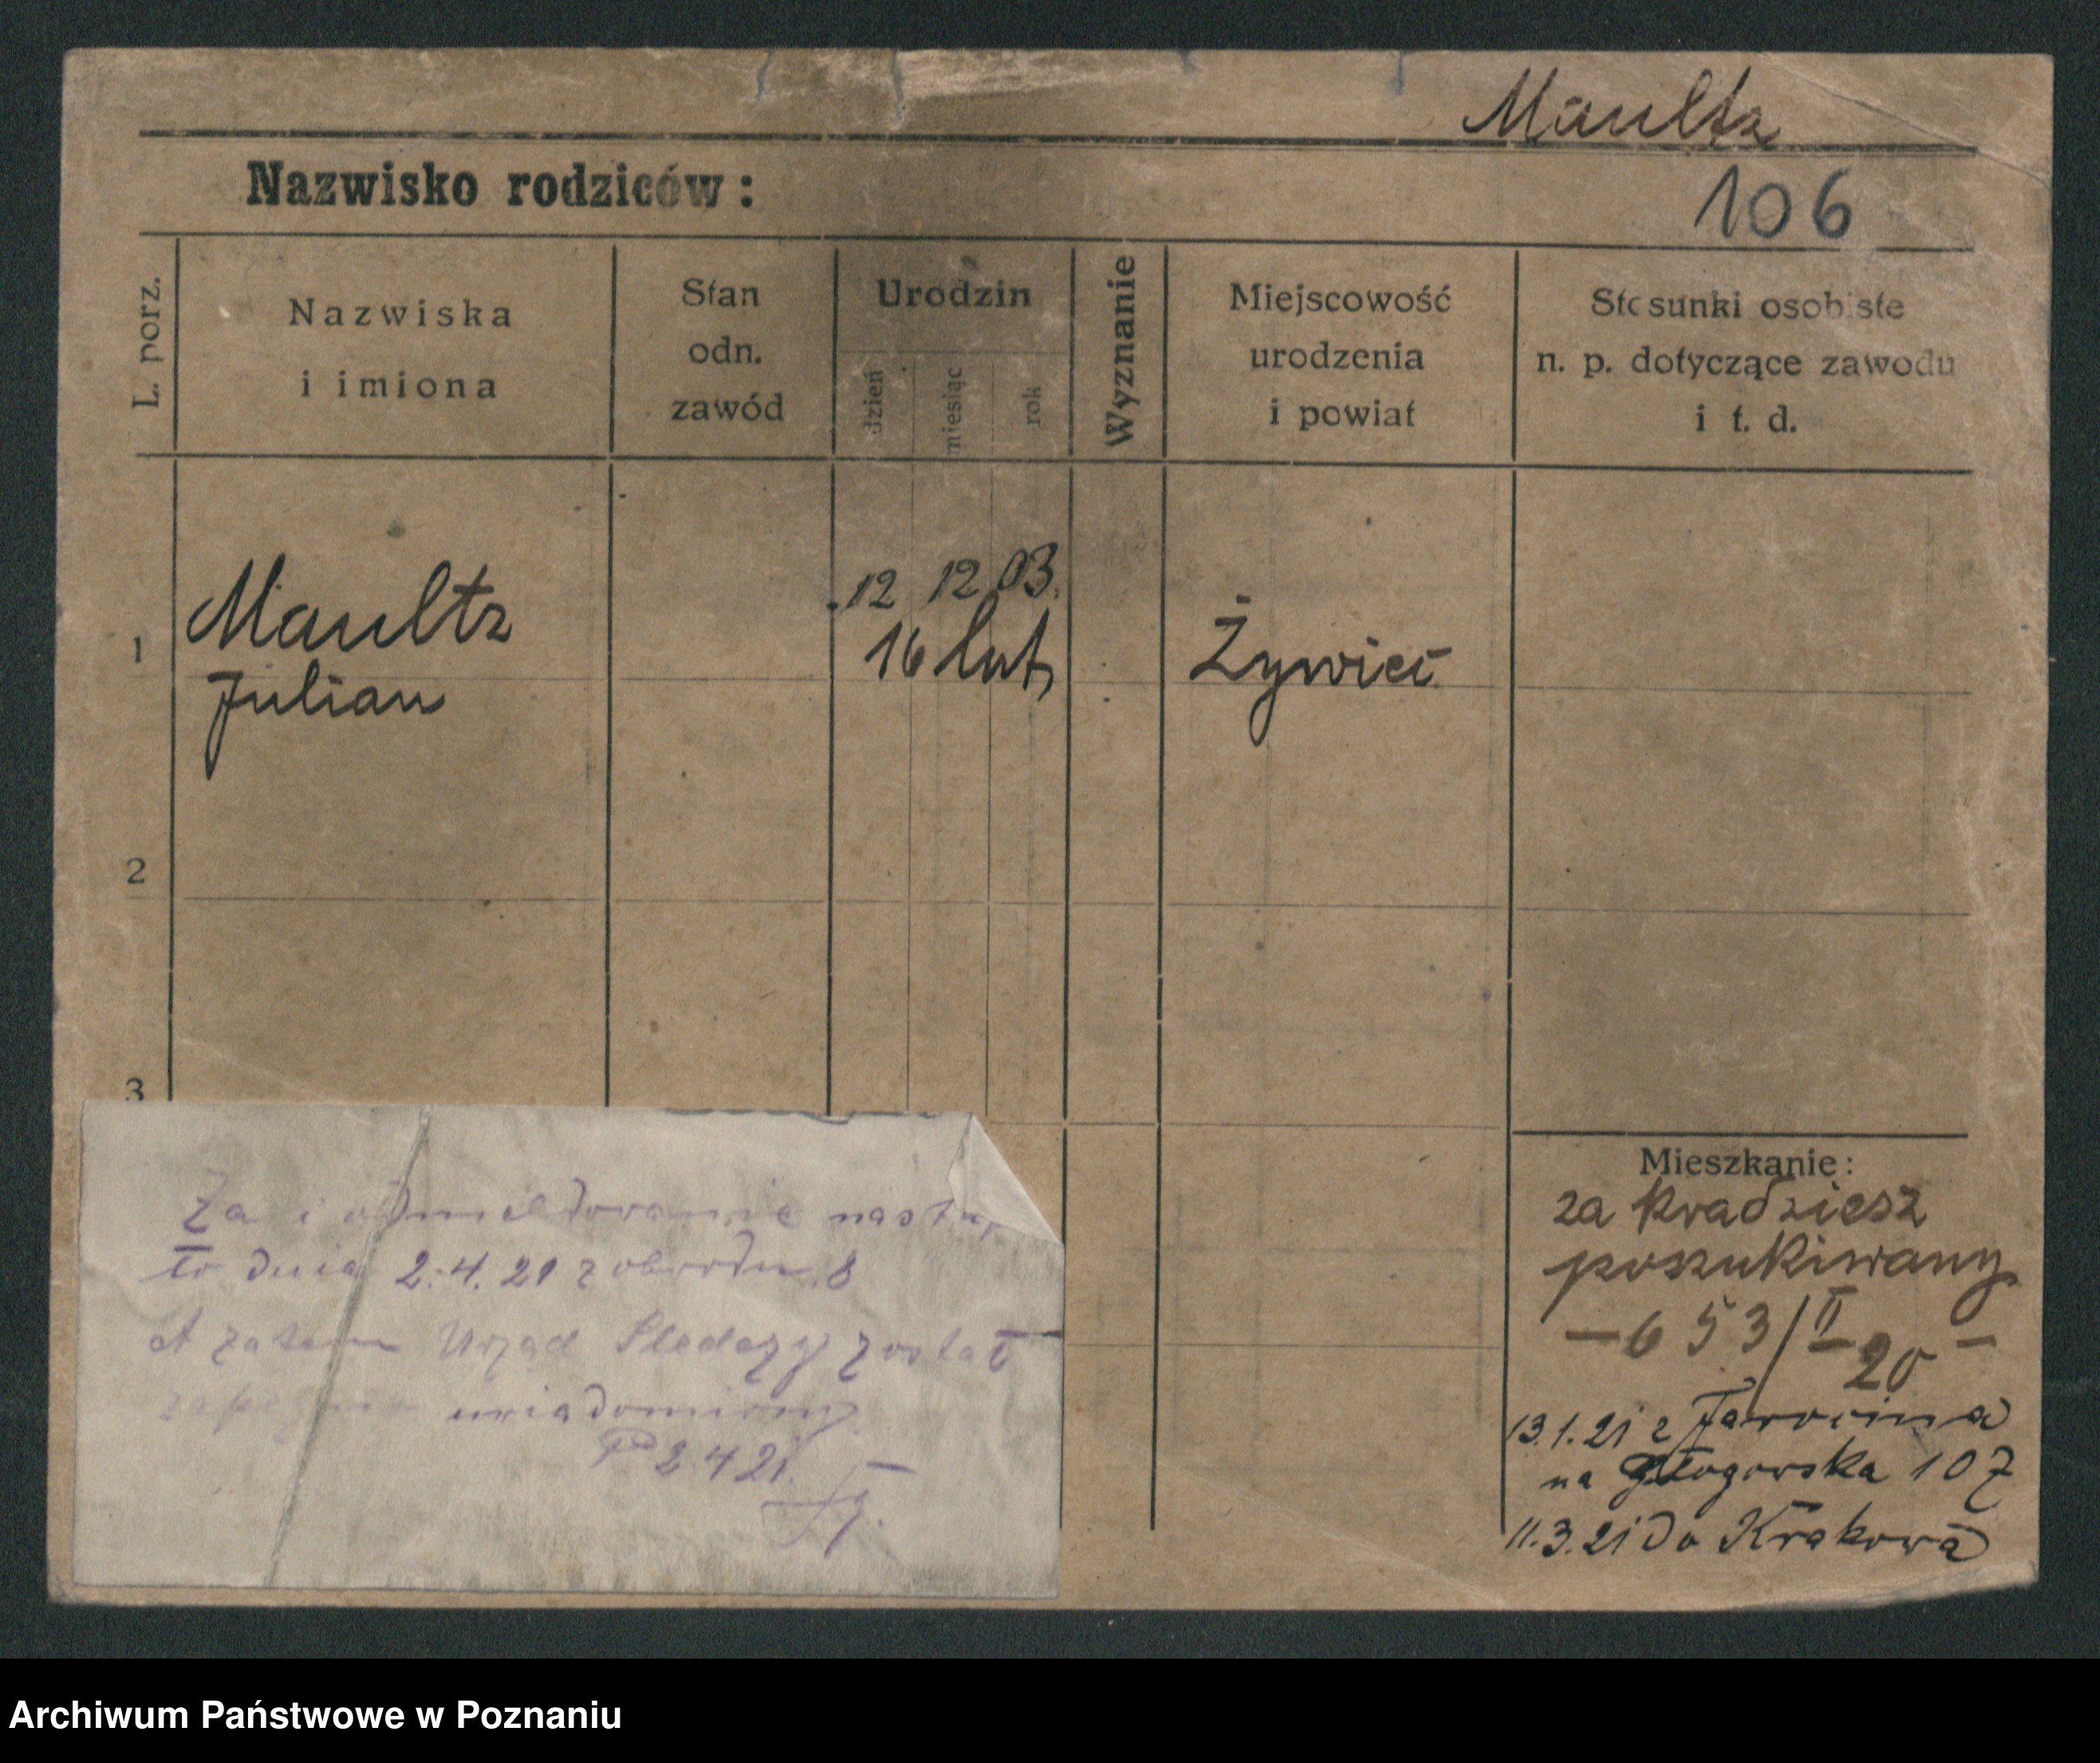 Maultz
Nazwisko rodziców:
106
L. porz.
Nazwiska
i imiona
Stan
odn.
zawód
Urodzin
dzień
miesiąc
rok
Wyznanie
Miejscowość
urodzenia
i powiat
Stosunki osobiste
n. p. dotyczące zawodu
i t. d.
1
Maultz
Julian
12 12 03.
16 lat
Żywiec
2
3
Mieszkanie:
za kradziesz
poszukiwany
—653/II 20—
13.1.21 z Jarocina
na Głogowska 107
11.3.21 do Krakowa
Za i odmeldowanie nastą-
ło dnia 2.4.21 z obwodu 8
A zatem Urząd Śledczy został
uwiadomiony
P 2 4 21.
Archiwum Państwowe w Poznaniu